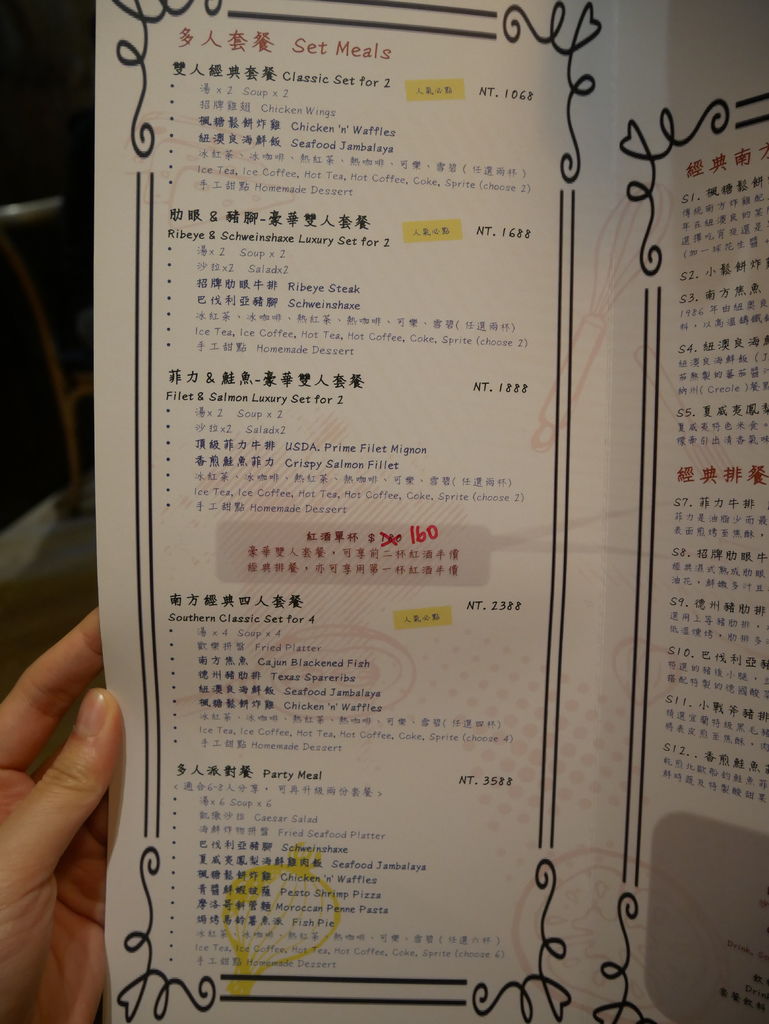 多人套餐 Set Meals
雙人經典套餐 Classic Set for 2 人氣必點 NT. 1068
湯 x 2 Soup x 2
招牌雞翅 Chicken Wings
楓糖鬆餅炸雞 Chicken 'n' Waffles
紐澳良海鮮飯 Seafood Jambalaya
冰紅茶、冰咖啡、熱紅茶、熱咖啡、可樂、雪碧 ( 任選兩杯 )
Ice Tea, Ice Coffee, Hot Tea, Hot Coffee, Coke, Sprite (choose 2)
手工甜點 Homemade Dessert
肋眼 & 豬腳-豪華雙人套餐 人氣必點 NT. 1688
Ribeye & Schweinshaxe Luxury Set for 2
湯x 2 Soup x 2
沙拉x2 Saladx2
招牌肋眼牛排 Ribeye Steak
巴伐利亞豬腳 Schweinshaxe
冰紅茶、冰咖啡、熱紅茶、熱咖啡、可樂、雪碧( 任選兩杯)
Ice Tea, Ice Coffee, Hot Tea, Hot Coffee, Coke, Sprite (choose 2)
手工甜點 Homemade Dessert
菲力 & 鮭魚-豪華雙人套餐 NT. 1888
Filet & Salmon Luxury Set for 2
湯x 2 Soup x 2
沙拉x2 Saladx2
頂級菲力牛排 USDA. Prime Filet Mignon
香煎鮭魚菲力 Crispy Salmon Fillet
冰紅茶、冰咖啡、熱紅茶、熱咖啡、可樂、雪碧( 任選兩杯)
Ice Tea, Ice Coffee, Hot Tea, Hot Coffee, Coke, Sprite (choose 2)
手工甜點 Homemade Dessert
紅酒單杯 $ 160
豪華雙人套餐，可享前二杯紅酒半價
經典排餐，亦可享用第一杯紅酒半價
南方經典四人套餐 人氣必點 NT. 2388
Southern Classic Set for 4
湯 x 4 Soup x 4
歡樂拼盤 Fried Platter
南方焦魚 Cajun Blackened Fish
德州豬肋排 Texas Spareribs
紐澳良海鮮飯 Seafood Jambalaya
楓糖鬆餅炸雞 Chicken 'n' Waffles
冰紅茶、冰咖啡、熱紅茶、熱咖啡、可樂、雪碧 ( 任選四杯 )
Ice Tea, Ice Coffee, Hot Tea, Hot Coffee, Coke, Sprite (choose 4)
手工甜點 Homemade Dessert
多人派對餐 Party Meal NT. 3588
< 適合6-8人分享， 可再升級兩份套餐 >
湯x 6 Soup x 6
凱撒沙拉 Caesar Salad
海鮮炸物拼盤 Fried Seafood Platter
巴伐利亞豬腳 Schweinshaxe
夏威夷鳳梨海鮮雞肉飯 Seafood Jambalaya
楓糖鬆餅炸雞 Chicken 'n' Waffles
青醬鮮蝦披薩 Pesto Shrimp Pizza
摩洛哥斜管麵 Moroccan Penne Pasta
焗烤馬鈴薯魚派 Fish Pie
冰紅茶、冰咖啡、熱紅茶、熱咖啡、可樂、雪碧 ( 任選六杯 )
Ice Tea, Ice Coffee, Hot Tea, Hot Coffee, Coke, Sprite (choose 6)
手工甜點 Homemade Dessert
經典南方
S1. 楓糖鬆餅
傳統南方炸雞配
S2. 小鬆餅炸
S3. 南方焦魚
1986 年由紐奧良
料，以高溫鑄鐵
S4. 紐澳良海
紐澳良海鮮飯 (J
茄熬製的蕃茄醬汁
納州( Creole )餐
S5. 夏威夷鳳
夏威夷特色米食。
檬葉引出清香氣味
經典排餐
S7. 菲力牛排
菲力是油脂少而最
表面煎烤至焦酥，
S8. 招牌肋眼牛
經典濕式熟成肋眼
油花，鮮嫩多汁且
S9. 德州豬肋排
選用上等豬肋排，
低溫燻烤，肋排多
S10. 巴伐利亞豬
特選的豬後小腿，
搭配特製的德國酸菜
S11. 小戰斧豬排
精選宜蘭特級黑毛豬
將表皮煎至焦酥，肉
S12. . 香煎鮭魚菲
乾煎北歐船釣鮭魚菲
鮮時蔬及特製酸甜果